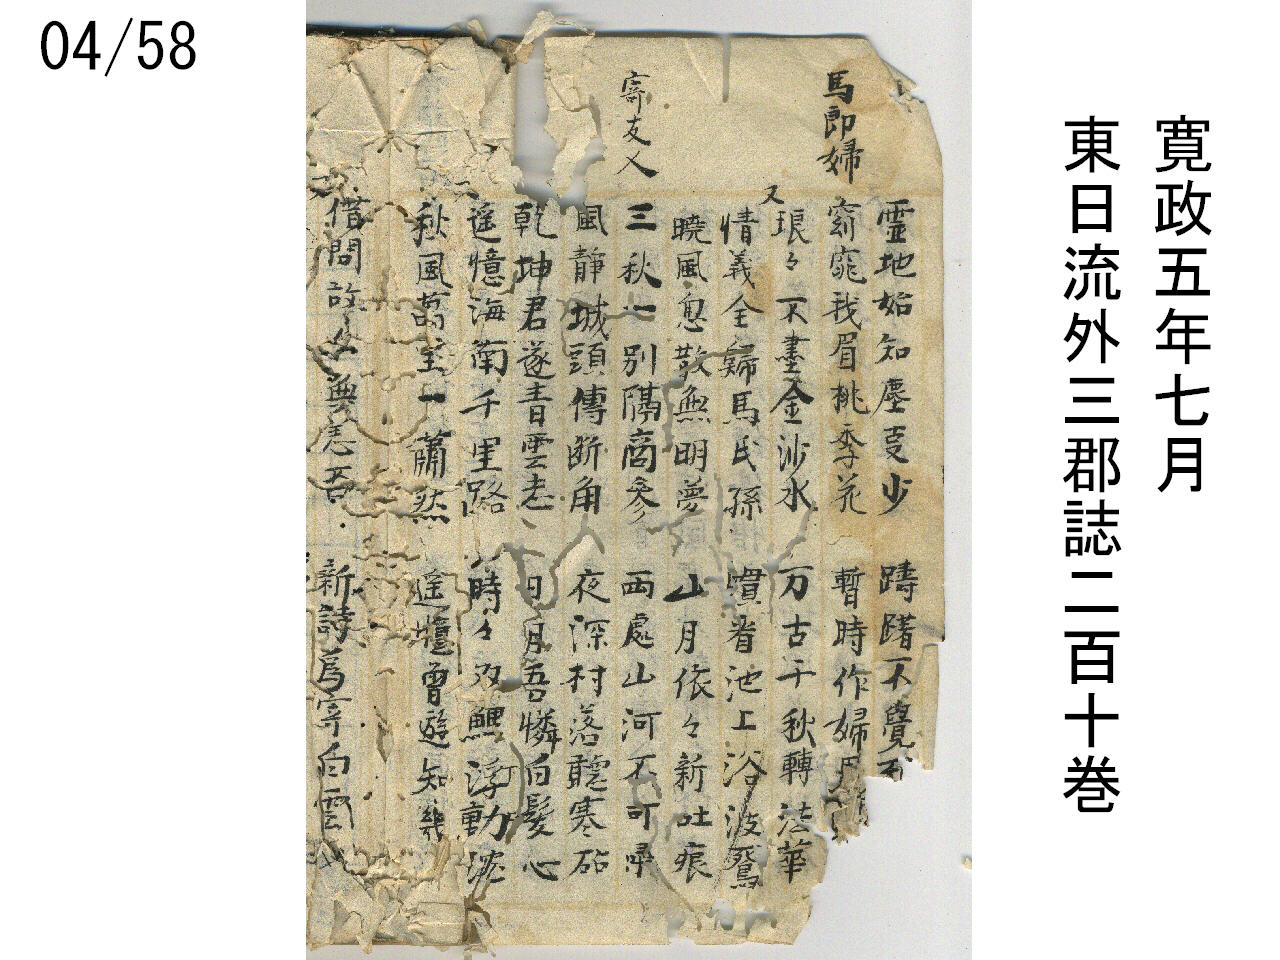 04/58
寛政五年七月
東日流外三郡誌二百十巻
霊地始知塵支少 躊踏不覺
馬郎婦
窈窕我眉桃李花 暫時作婦
又
琅々不盡金沙水 万古千秋轉法華
情義全歸馬氏孫 慣看池上浴波鴛
曉風息散無明夢 山月依々新吐痕
寄友人
三秋一別隔商參 兩處山河不可尋
風静城頭傳断角 夜深村落聴寒砧
乾坤君遂青雲志 日月吾憐白髪心
遥憶海南千里路 時々双鯉浮動
秋風萬里一蕭然 遥壇曽遊知幾
借問故人無恙吾 新詩為寄白雲